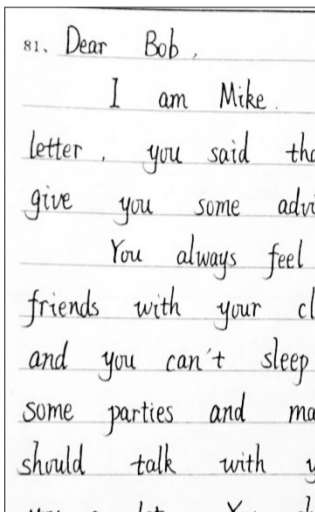 81、Dear Bob,
I am Mike.
letter, you said
give you some
You always feel
friends with your
and you can't sleep
some parties and
should talk with